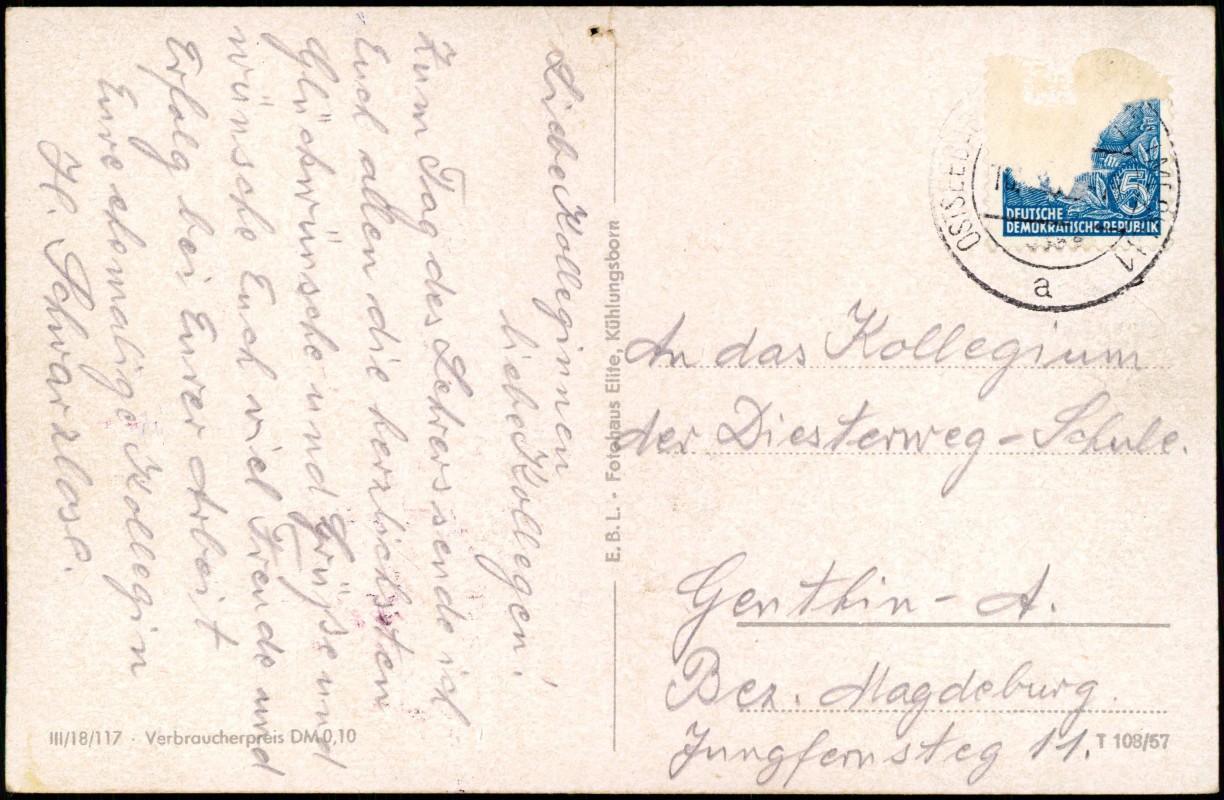 Liebe Kolleginnen
liebe Kollegen!
Zum Tag des Lehrers sende ich
Euch allen die herzlichsten
Glückwünsche und Grüße und
wünsche Euch viel Freude und
Erfolg bei Eurer Arbeit
Eure ehemalige Kollegin
H. Schwarzlose.
E. B. L. · Fotohaus Elite, Kühlungsborn
III/18/117 · Verbraucherpreis DM 0,10
5
DEUTSCHE
DEMOKRATISCHE REPUBLIK
a
An das Kollegium
der Diesterweg-Schule.
Genthin - A.
Bez. Magdeburg.
Jungfernsteg 11.
T 108/57